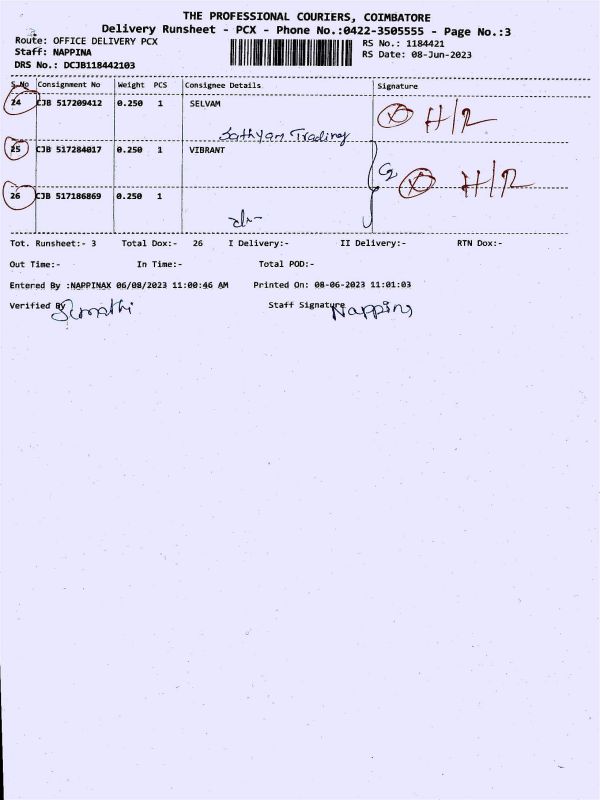 THE PROFESSIONAL COURIERS, COIMBATORE
Delivery Runsheet - PCX - Phone No.:0422-3505555 - Page No.:3
Route: OFFICE DELIVERY PCX
Staff: NAPPINA
DRS No.: DCJB118442103
RS No.: 1184421
RS Date: 08-Jun-2023
S.No Consignment No Weight PCS Consignee Details Signature
24 CJB 517209412 0.250 1 SELVAM H/R
Sathyam Trading
25 CJB 517284017 0.250 1 VIBRANT
H/R
26 CJB 517186869 0.250 1
Tot. Runsheet:- 3 Total Dox:- 26 I Delivery:- II Delivery:- RTN Dox:-
Out Time:- In Time:- Total POD:-
Entered By :NAPPINAX 06/08/2023 11:00:46 AM Printed On: 08-06-2023 11:01:03
Verified By Sumathi Staff Signature Nappina